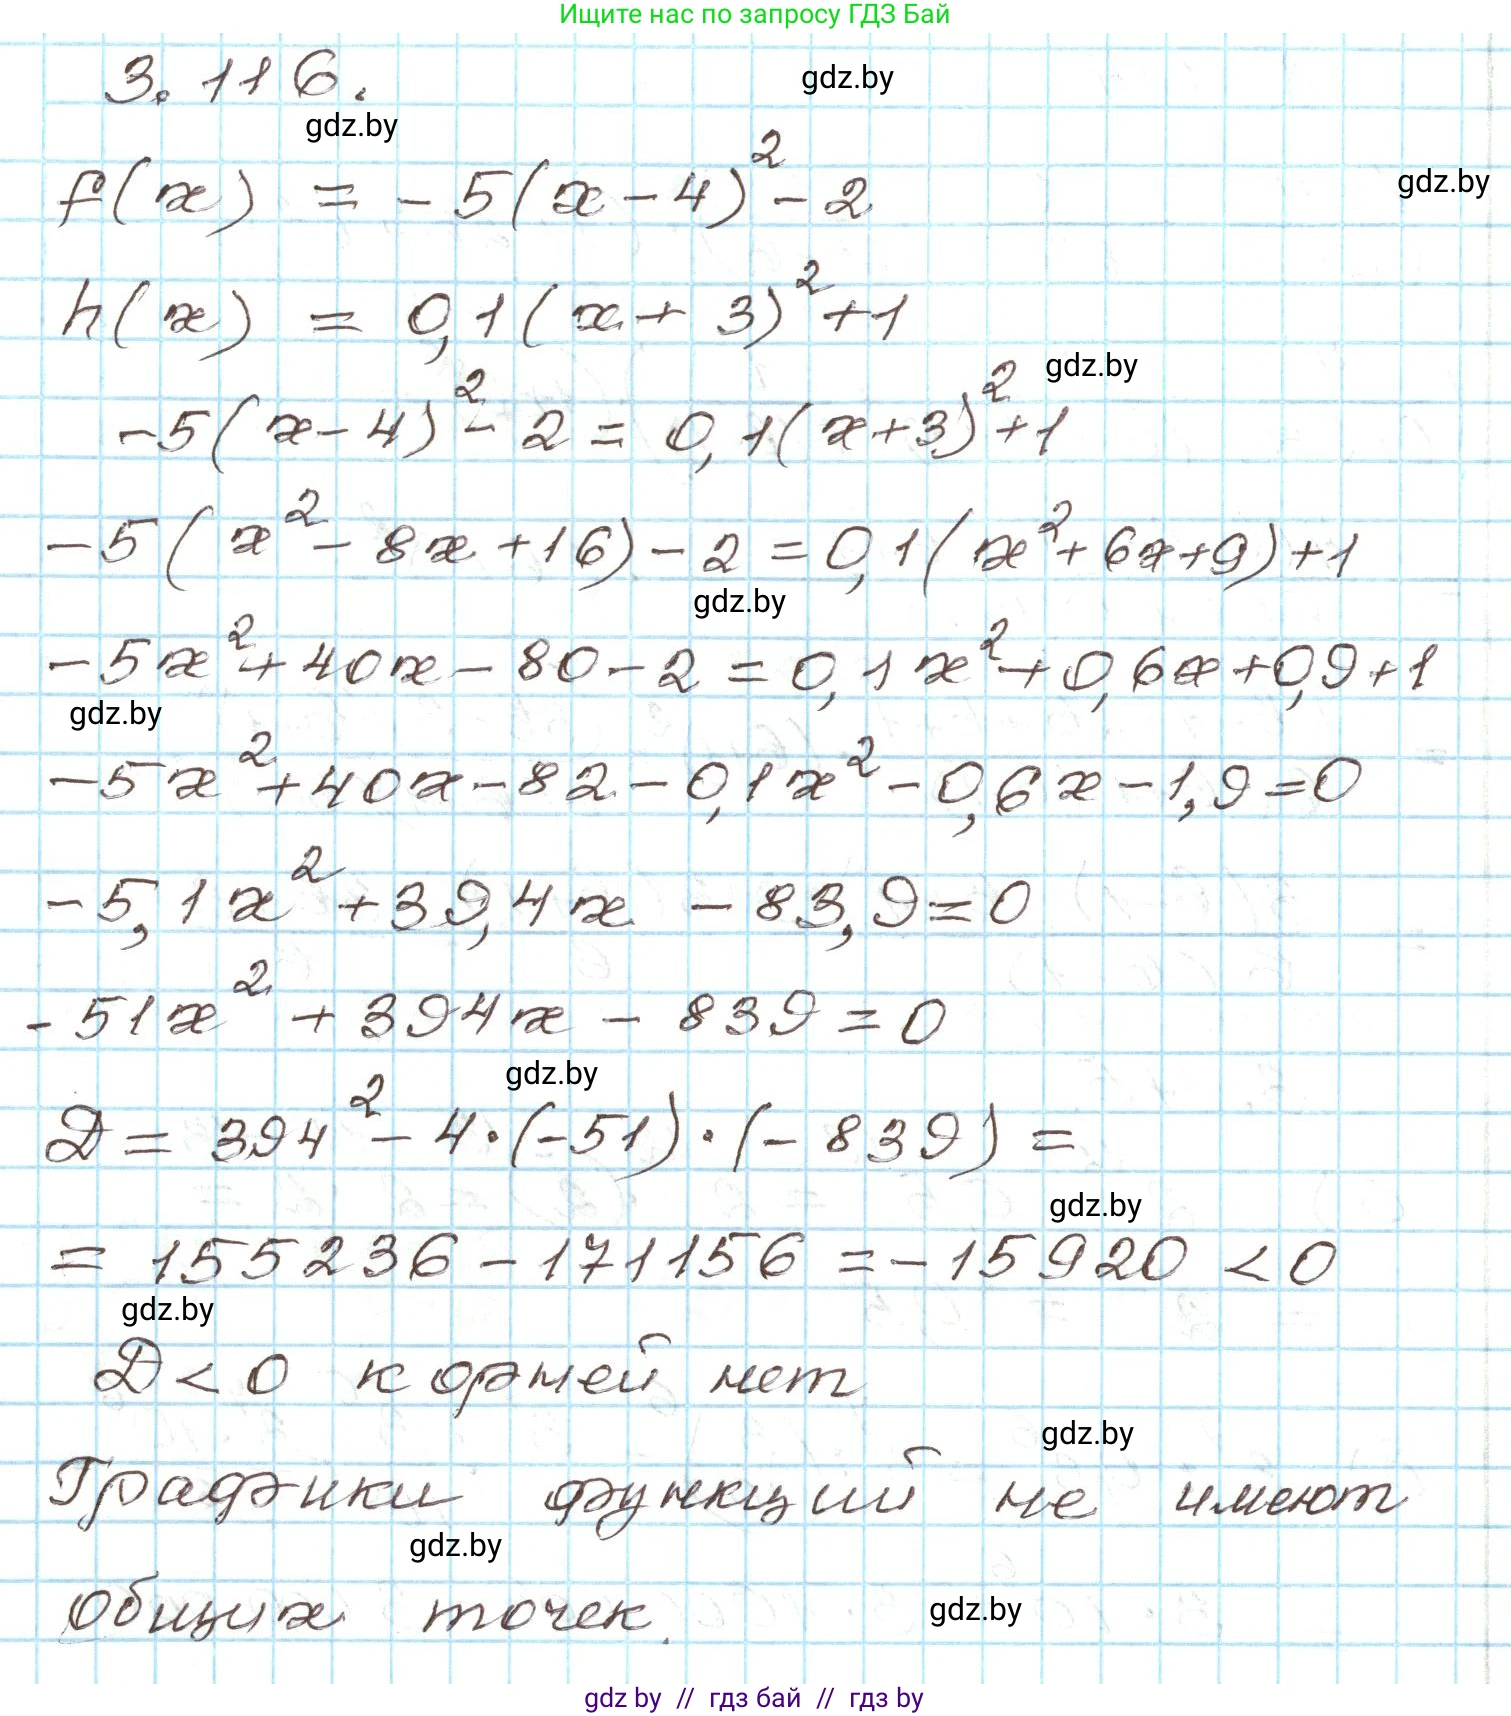 Ищите нас по запросу ГДЗ Бай
3.116.
gdz.by
gdz.by
f(x) = -5(x-4)²-2
gdz.by
h(x) = 0,1(x+3)²+1
gdz.by
-5(x-4)²-2=0,1(x+3)²+1
-5(x²-8x+16)-2=0,1(x²+6x+9)+1
gdz.by
-5x²+40x-80-2=0,1x²+0,6x+0,9+1
gdz.by
-5x²+40x-82-0,1x²-0,6x-1,9=0
-5,1x²+39,4x-83,9=0
-51x²+394x-839=0
gdz.by
D=394²-4·(-51)·(-839)=
gdz.by
=155236-171156=-15920<0
gdz.by
D<0 корней нет
gdz.by
Графики функций не имеют
gdz.by
общих точек.
gdz.by
gdz by // гдз бай // гдз by